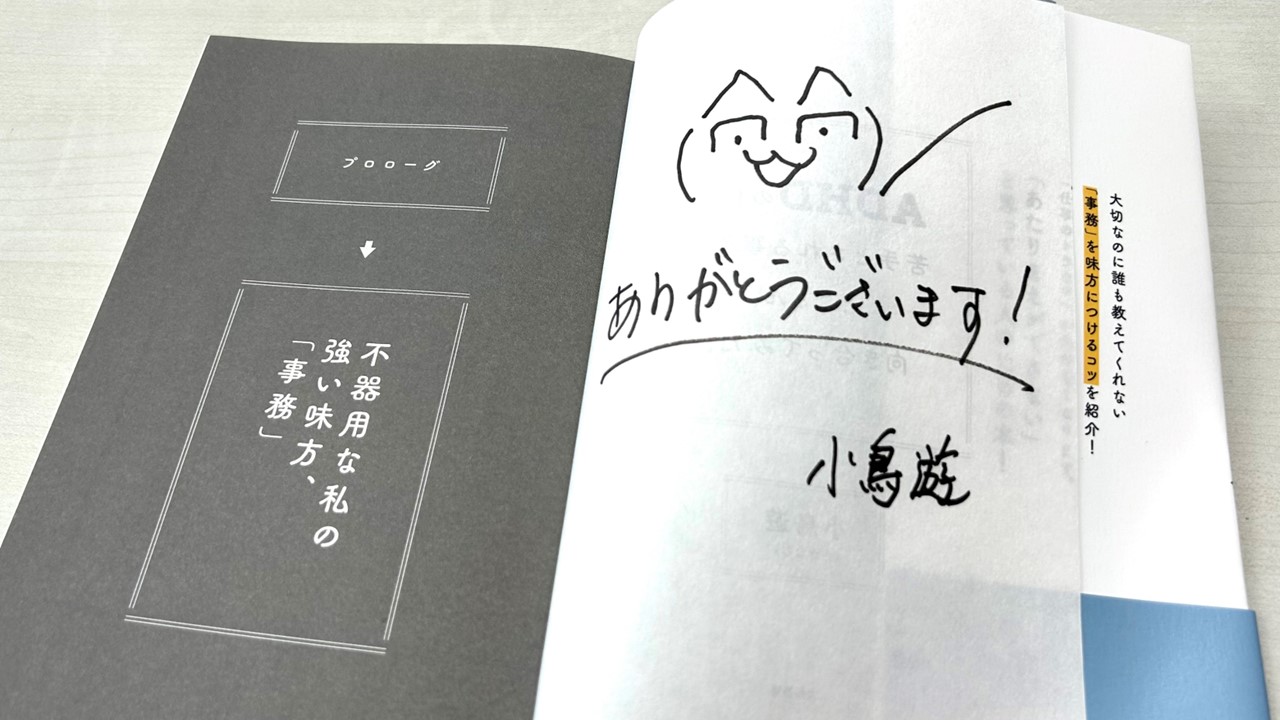 プロローグ
不器用な私の
強い味方、
「事務」
ありがとうございます!
小鳥遊
大切なのに誰も教えてくれない
「事務」を味方につけるコツを紹介!
ADHD
小鳥遊